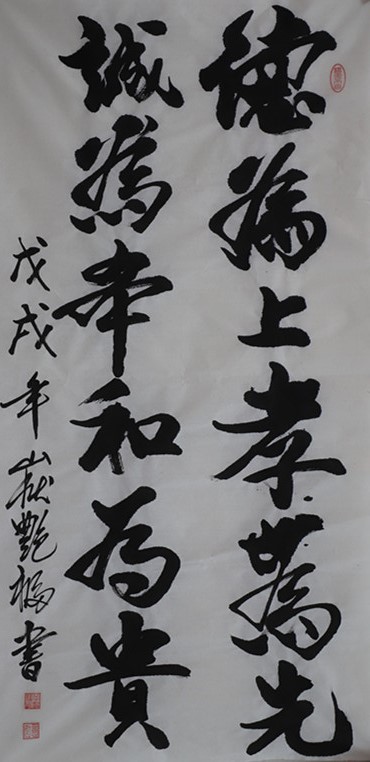 德為上孝為先
誠為本和為貴
戊戌年嶽艷梅書